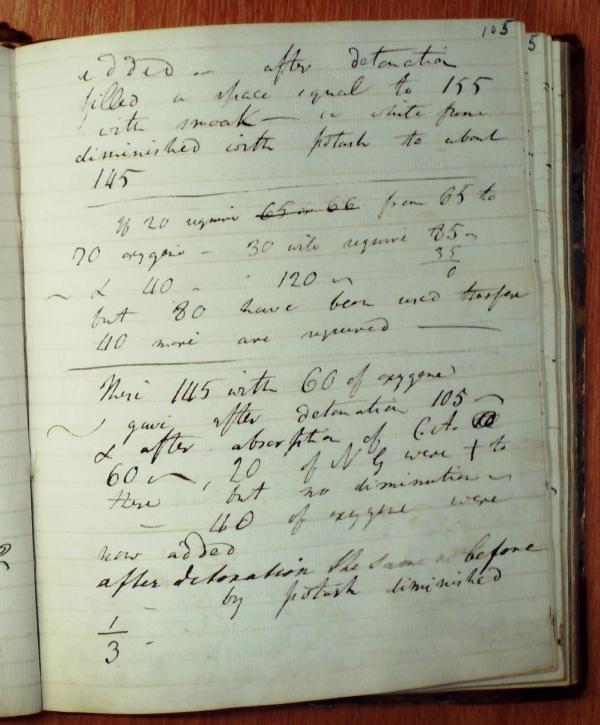 105
5
added — after detonation
filled a space equal to 155
with smoak — a white fume
diminished with potash to about
145
If 20 require 65 or 66 from 65 to
70 oxygene — 30 will require 85
35
0
& 40 " " 120
but 80 have been used therefore
40 more are required
These 145 with 60 of oxygene
gave after detonation 105
& after absorption of C. A.
60, 20 of N G were + to
these but no diminution
— 40 of oxygene were
now added
after detonation the same as before
by potash diminished
1
3